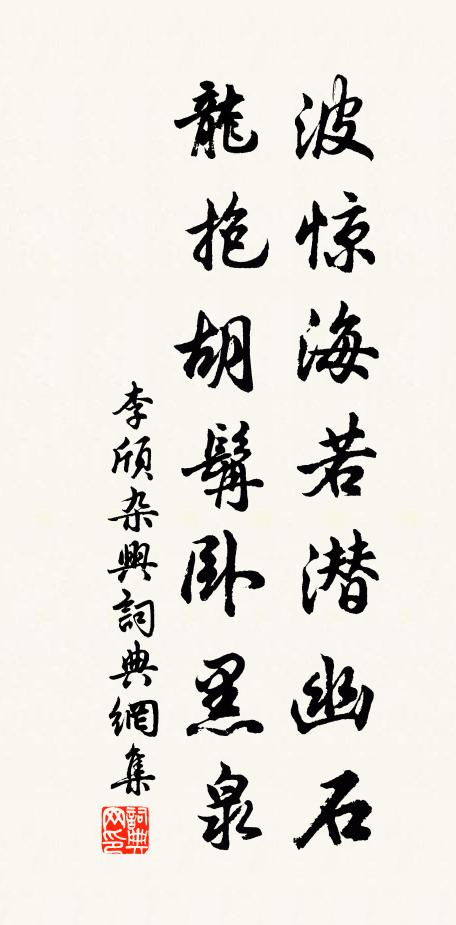 波惊海若潜幽石
龍抱胡髯卧黑泉
李頎杂興詞典網集
詞典网印